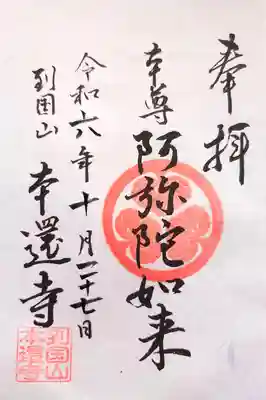 奉拝
本尊
阿弥陀如来
令和六年十月二十七日
列国山
本還寺
列国山
本還寺